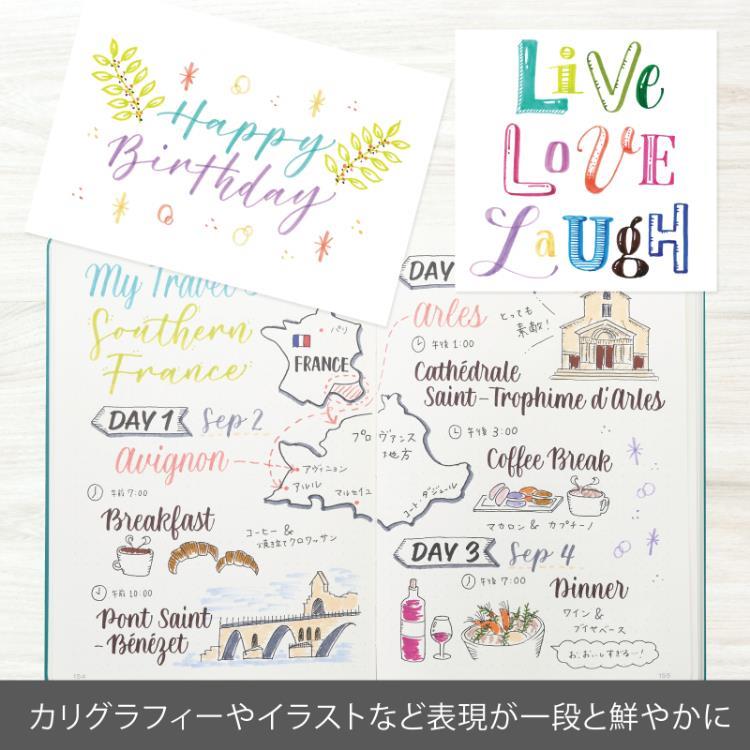 Happy
Birthday
LiVe
LoVE
LaugH
My Travel
Southern
France
パリ
FRANCE
DAY 1 Sep 2
avignon
午前 7:00
Breakfast
コーヒー &
焼き立てクロワッサン
午前 10:00
Pont Saint
-Bénézet
プロヴァンス
地方
アヴィニョン
アルル
マルセイユ
コート・ダジュール
184
DAY
arles
とっても
素敵!
午後 1:00
Cathédrale
Saint-Trophime d'Arles
午後 3:00
Coffee Break
マカロン & カプチーノ
DAY 3 Sep 4
午後 7:00
Dinner
ワイン &
ブイヤベース
お、おいしすぎるー!
185
カリグラフィーやイラストなど表現が一段と鮮やかに